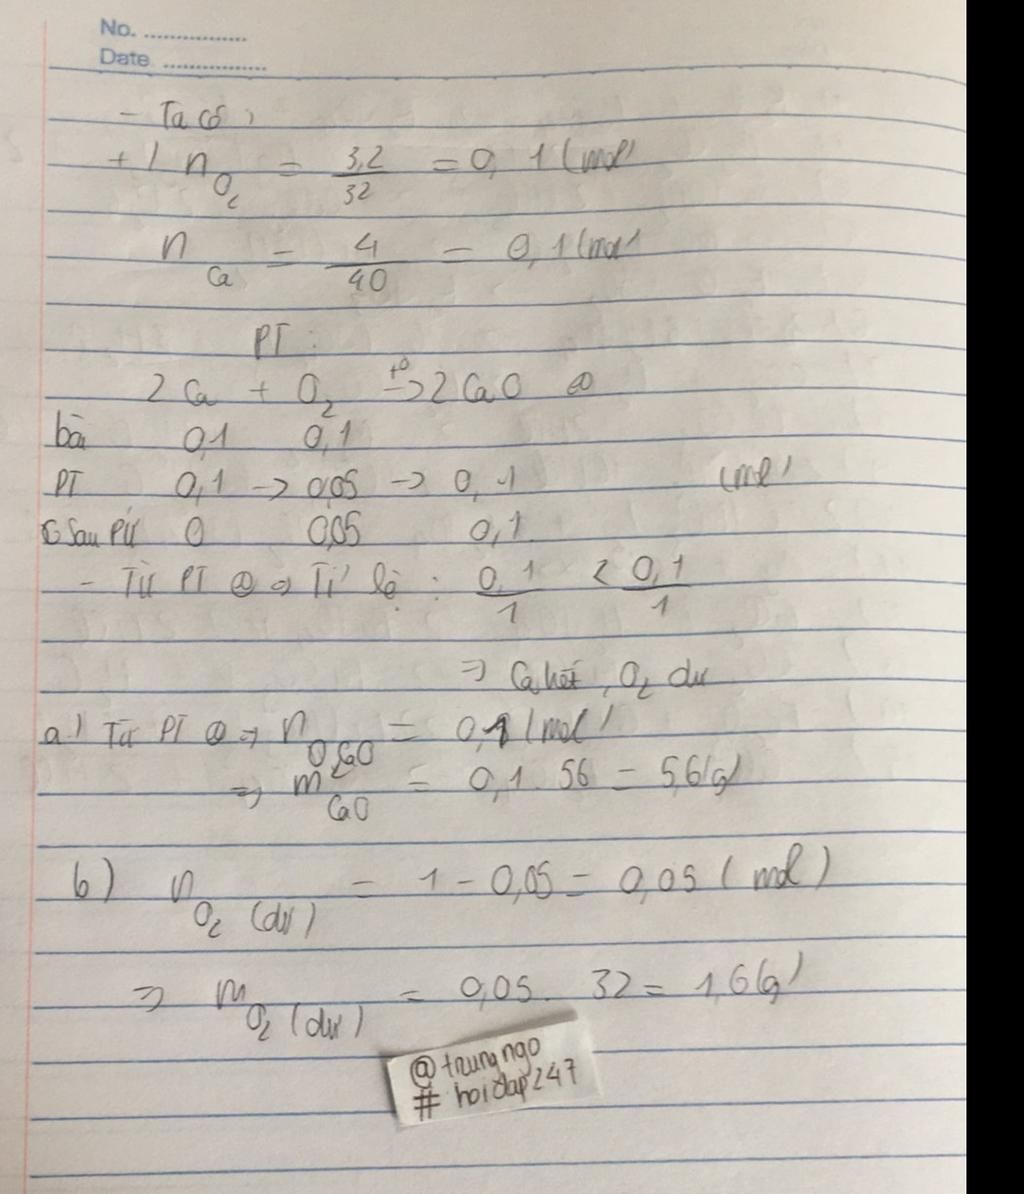 No. ................
Date ................
- Ta có:
+) n O2 = 3,2/32 = 0,1 (mol)
n Ca = 4/40 = 0,1 (mol)
PT:
2 Ca + O2 t° -> 2 CaO @
bài 0,1 0,1
PT 0,1 -> 0,05 -> 0,1 (mol)
Sau PƯ 0 0,05 0,1
- Từ PT @ => Tỉ lệ: 0,1/1 < 0,1/1
=> Ca hết, O2 dư
a) Từ PT @ => n CaO = 0,1 (mol)
=> m CaO = 0,1 . 56 = 5,6 (g)
b) n O2 (dư) = 1 - 0,05 = 0,05 (mol)
=> m O2 (dư) = 0,05 . 32 = 1,6 (g)
@trungngo
# hoidap247